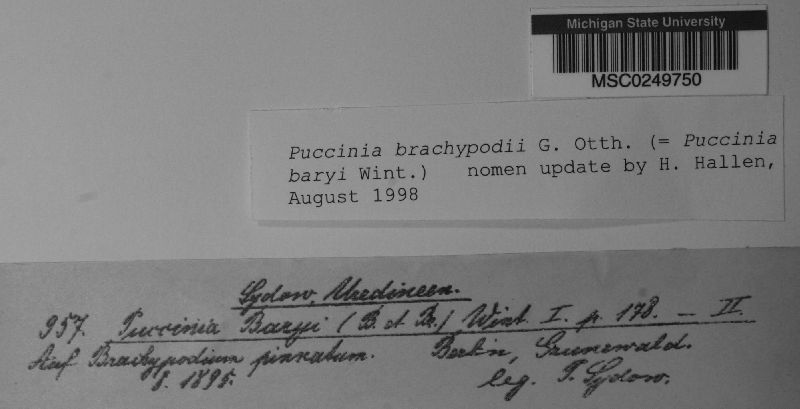 Michigan State University
MSC0249750
Puccinia brachypodii G. Otth. (= Puccinia
baryi Wint.) nomen update by H. Hallen,
August 1998
Sydow, Uredineen.
957. Puccinia Baryi (B. et Br.) Wint. I. p. 178. — II.
Auf Brachypodium pinnatum. Berlin, Grunewald.
8. 1895. leg. P. Sydow.